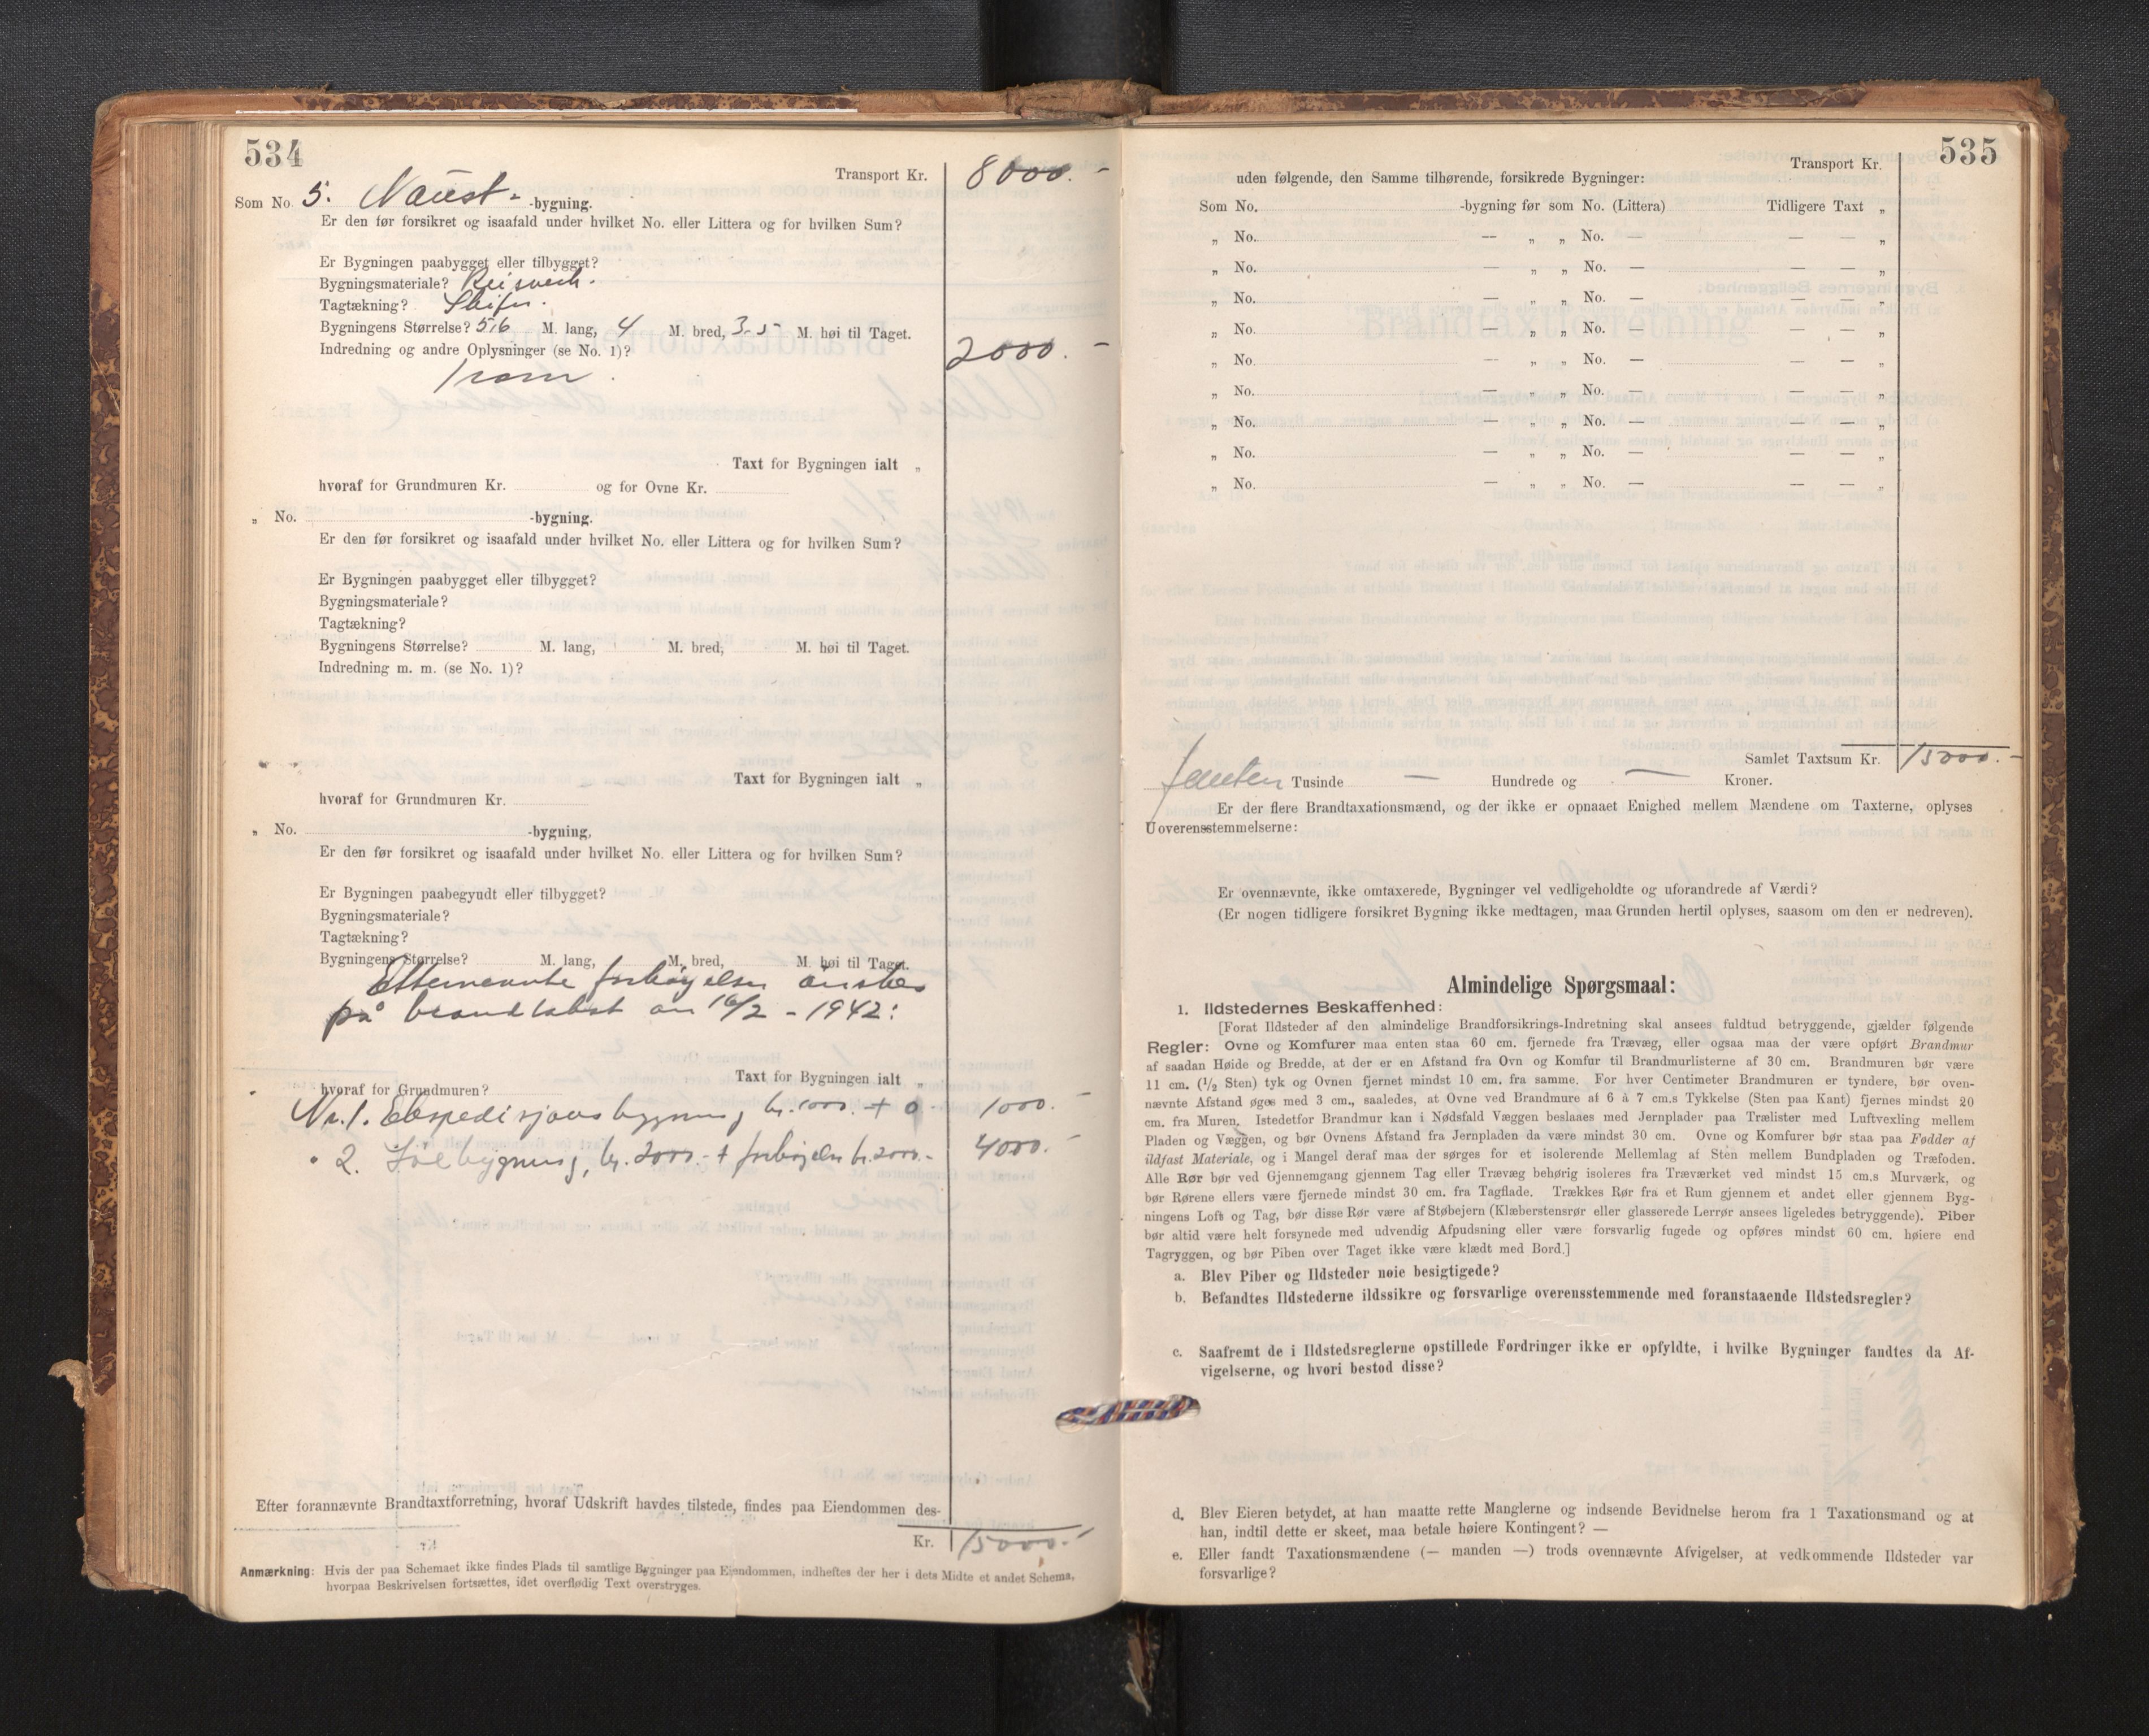 534
Transport Kr. 8000.-
Som No 5. Naust- -bygning.
Er den før forsikret og isaafald under hvilket No. eller Littera og for hvilken Sum?
Er Bygningen paabygget eller tilbygget?
Bygningsmateriale? Reisverk.
Tagtækning? Skifer.
Bygningens Størrelse? 5,6 M. lang, 4 M. bred, 3,5 M. høi til Taget.
Indredning og andre Oplysninger (se No. 1)? 2000.-
1 rom.
Taxt for Bygningen ialt „
hvoraf for Grundmuren Kr. og for Ovne Kr.
„ No. -bygning.
Er den før forsikret og isaafald under hvilket No. eller Littera og for hvilken Sum?
Er Bygningen paabygget eller tilbygget?
Bygningsmateriale?
Tagtækning?
Bygningens Størrelse? M. lang, M. bred, M. høi til Taget.
Indredning m. m. (se No. 1)?
Taxt for Bygningen ialt „
hvoraf for Grundmuren Kr.
„ No. -bygning,
Er den før forsikret og isaafald under hvilket No. eller Littera og for hvilken Sum?
Er Bygningen paabegyndt eller tilbygget?
Bygningsmateriale?
Tagtækning?
Bygningens Størrelse? M. lang, M. bred, M. høi til Taget.
Etternevnte forhøyelser ønskes
på brandtakst av 16/2 - 1942:
Taxt for Bygningen ialt „
hvoraf for Grundmuren?
Nr. 1. Ekspedisjonsbygning kr. 1000. + 0 1000.-
" 2. bygning, kr. 2000.- + forhøyelse kr. 2000.- 4000.-
Efter forannævnte Brandtaxtforretning, hvoraf Udskrift havdes tilstede, findes paa Eiendommen des-
Kr. 15000.-
Anmærkning: Hvis der paa Schemaet ikke findes Plads til samtlige Bygninger paa Eiendommen, indheftes der her i dets Midte et andet Schema,
hvorpaa Beskrivelsen fortsættes, idet overflødig Text overstryges.
535
Transport Kr.
uden følgende, den Samme tilhørende, forsikrede Bygninger:
Som No. -bygning før som No. (Littera) Tidligere Taxt „
„ No. — „ „ No. — — — „
„ No. — „ „ No. — — — „
„ No. — „ „ No. — — — „
„ No. — „ „ No. — — — „
„ No. — „ „ No. — — — „
„ No. — „ „ No. — — — „
„ No. — „ „ No. — — — „
„ No. — „ „ No. — — — „
„ No. — „ „ No. — — — „
Samlet Taxtsum Kr. 15000.-
femten Tusinde — Hundrede og — Kroner.
Er der flere Brandtaxationsmænd, og der ikke er opnaaet Enighed mellem Mændene om Taxterne, oplyses
Uoverensstemmelserne:
Er ovennævnte, ikke omtaxerede, Bygninger vel vedligeholdte og uforandrede af Værdi?
(Er nogen tidligere forsikret Bygning ikke medtagen, maa Grunden hertil oplyses, saasom om den er nedreven).
Almindelige Spørgsmaal:
1. Ildstedernes Beskaffenhed:
[Forat Ildsteder af den almindelige Brandforsikrings-Indretning skal ansees fuldtud betryggende, gjælder følgende
Regler: Ovne og Komfurer maa enten staa 60 cm. fjernede fra Trævæg, eller ogsaa maa der være opført Brandmur
af saadan Høide og Bredde, at der er en Afstand fra Ovn og Komfur til Brandmurlisterne af 30 cm. Brandmuren bør være
11 cm. (1/2 Sten) tyk og Ovnen fjernet mindst 10 cm. fra samme. For hver Centimeter Brandmuren er tyndere, bør oven-
nævnte Afstand øges med 3 cm., saaledes, at Ovne ved Brandmure af 6 à 7 cm.s Tykkelse (Sten paa Kant) fjernes mindst 20
cm. fra Muren. Istedetfor Brandmur kan i Nødsfald Væggen beslaaes med Jernplader paa Trælister med Luftvexling mellem
Pladen og Væggen, og bør Ovnens Afstand fra Jernpladen da være mindst 30 cm. Ovne og Komfurer bør staa paa Fødder af
ildfast Materiale, og i Mangel deraf maa der sørges for et isolerende Mellemlag af Sten mellem Bundpladen og Træfoden.
Alle Rør bør ved Gjennemgang gjennem Tag eller Trævæg behørig isoleres fra Træværket ved mindst 15 cm.s Murværk, og
bør Rørene ellers være fjernede mindst 30 cm. fra Tagflade. Trækkes Rør fra et Rum gjennem et andet eller gjennem Byg-
ningens Loft og Tag, bør disse Rør være af Støbejern (Klæberstensrør eller glasserede Lerrør ansees ligeledes betryggende). Piber
bør altid være helt forsynede med udvendig Afpudsning eller være forsvarlig fugede og opføres mindst 60 cm. høiere end
Tagryggen, og bør Piben over Taget ikke være klædt med Bord.]
a. Blev Piber og Ildsteder nøie besigtigede?
b. Befandtes Ildstederne ildssikre og forsvarlige overensstemmende med foranstaaende Ildstedsregler?
c. Saafremt de i Ildstedsreglerne opstillede Fordringer ikke er opfyldte, i hvilke Bygninger fandtes da Af-
vigelserne, og hvori bestod disse?
d. Blev Eieren betydet, at han maatte rette Manglerne og indsende Bevidnelse herom fra 1 Taxationsmand og at
han, indtil dette er skeet, maa betale høiere Kontingent? —
e. Eller fandt Taxationsmændene (— manden —) trods ovennævnte Afvigelser, at vedkommende Ildsteder var
forsvarlige?